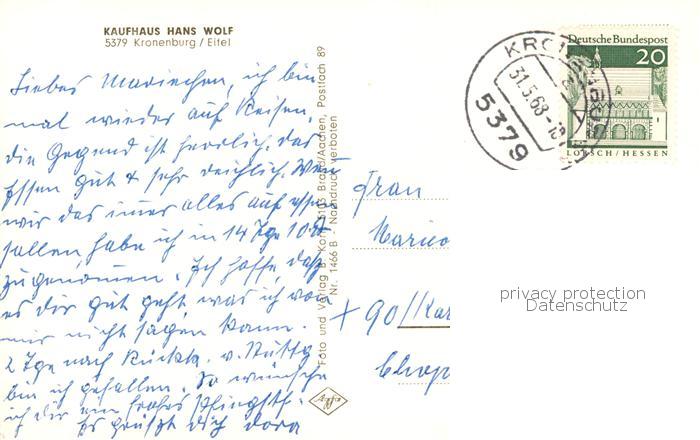 KAUFHAUS HANS WOLF
5379 Kronenburg / Eifel
Liebes Mariechen, ich bin
mal wieder auf Reisen.
die Gegend ist herrlich, das
Essen gut & sehr reichlich. Wenn
wir das immer alles aufessen
sollen habe ich in 14 Tge 10
zugenommen. Ich hoffe, daß
es dir gut geht was ich von
mir nicht sagen kann.
2 Tge nach Rückk. v. Stuttg
bin ich gefallen. So wünsche
ich dir ein frohes Pfingstf.
Es grüßt dich Dora
Foto und Verlag B. Kor 5105 Brand/Aachen, Postfach 89
Nr. 1466 B - Nachdruck verboten
Agfa
KRONENBURG
31.5.68-18
5379
Deutsche Bundespost
20
LORSCH/HESSEN
Frau
Marie
90//Kar
privacy protection
Datenschutz